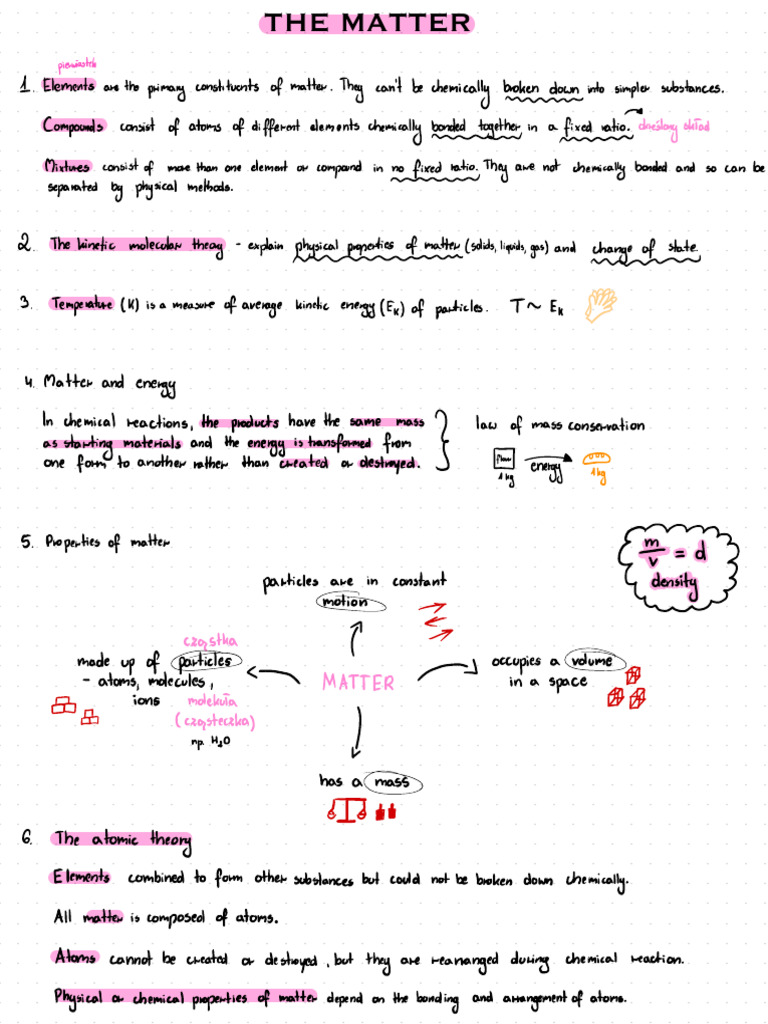 THE MATTER
pierwiastek
1. Elements are the primary constituents of matter. They can't be chemically broken down into simpler substances.
Compounds consist of atoms of different elements chemically bonded together in a fixed ratio. określony skład
Mixtures consist of more than one element or compound in no fixed ratio. They are not chemically bonded and so can be
separated by physical methods.
2. The kinetic molecular theory - explain physical properties of matter (solids, liquids, gas) and change of state.
3. Temperature (K) is a measure of average kinetic energy (EK) of particles. T ~ EK
4. Matter and energy
In chemical reactions, the products have the same mass
as starting materials and the energy is transformed from
one form to another rather than created or destroyed.
law of mass conservation
flour energy
1 kg 1 kg
5. Properties of matter
m/v = d
density
particles are in constant
motion
cząstka
made up of particles
- atoms, molecules,
ions molekuła
(cząsteczka)
np. H2O
MATTER
occupies a volume
in a space
has a mass
6. The atomic theory
Elements combined to form other substances but could not be broken down chemically.
All matter is composed of atoms.
Atoms cannot be created or destroyed, but they are rearranged during chemical reaction.
Physical or chemical properties of matter depend on the bonding and arrangement of atoms.